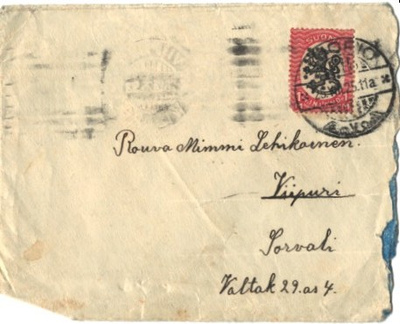 SUOMI
Rouva Mimmi Lehikoinen.
Viipuri
Sorvali
Valtak 29. as 4.